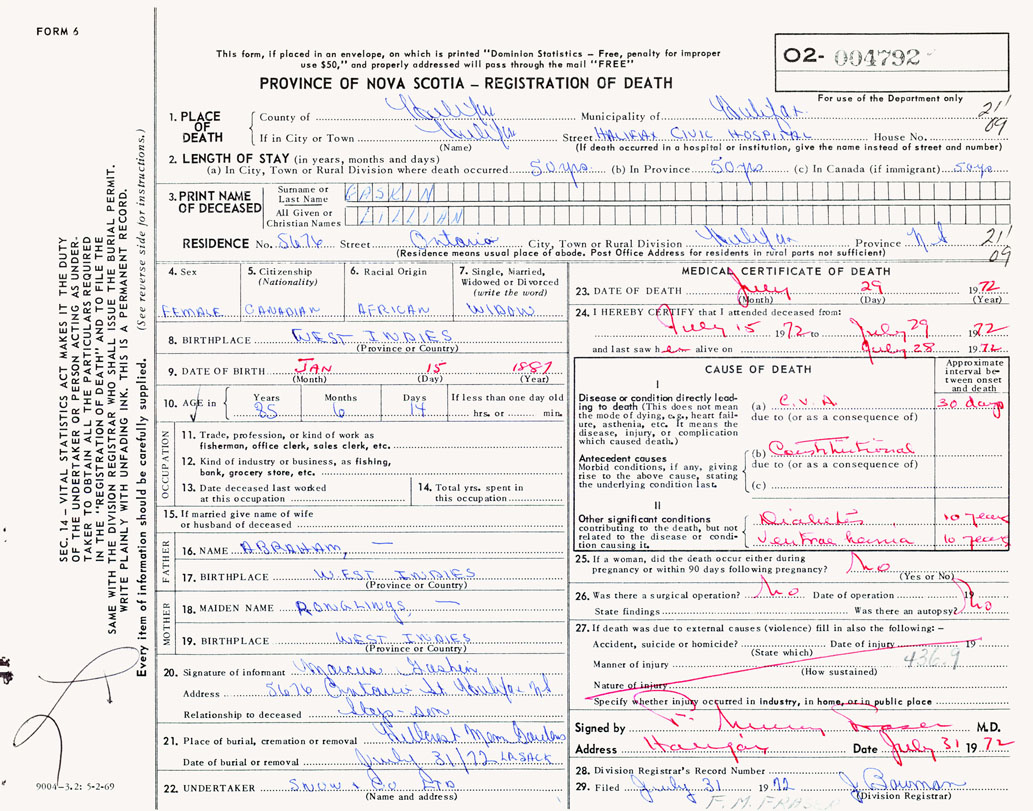 FORM 6
This form, if placed in an envelope, on which is printed "Dominion Statistics – Free, penalty for improper
use $50," and properly addressed will pass through the mail "FREE"
PROVINCE OF NOVA SCOTIA – REGISTRATION OF DEATH
O2- 004792
For use of the Department only
SEC. 14 – VITAL STATISTICS ACT MAKES IT THE DUTY
OF THE UNDERTAKER OR PERSON ACTING AS UNDER-
TAKER TO OBTAIN ALL THE PARTICULARS REQUIRED
IN THE "REGISTRATION OF DEATH" AND TO FILE THE
SAME WITH THE DIVISION REGISTRAR WHO SHALL ISSUE THE BURIAL PERMIT.
WRITE PLAINLY WITH UNFADING INK. THIS IS A PERMANENT RECORD.
Every item of information should be carefully supplied. (See reverse side for instructions.)
1. PLACE OF DEATH
County of Halifax Municipality of Halifax 21'
If in City or Town Halifax Street HALIFAX CIVIC HOSPITAL House No. 09
(Name) (If death occurred in a hospital or institution, give the name instead of street and number)
2. LENGTH OF STAY (in years, months and days)
(a) In City, Town or Rural Division where death occurred 50 yrs. (b) In Province 50 yrs (c) In Canada (if immigrant) 50 yrs
3. PRINT NAME OF DECEASED
Surname or Last Name GASKIN
All Given or Christian Names LILLIAN
RESIDENCE No. 5676 Street Ontario City, Town or Rural Division Halifax Province N.S 21'
(Residence means usual place of abode. Post Office Address for residents in rural parts not sufficient) 09
4. Sex
FEMALE
5. Citizenship (Nationality)
CANADIAN
6. Racial Origin
AFRICAN
7. Single, Married, Widowed or Divorced (write the word)
WIDOW
8. BIRTHPLACE WEST INDIES
(Province or Country)
9. DATE OF BIRTH JAN 15 1887
(Month) (Day) (Year)
10. AGE in Years Months Days If less than one day old
85 6 14 hrs. or min.
OCCUPATION
11. Trade, profession, or kind of work as
fisherman, office clerk, sales clerk, etc.
12. Kind of industry or business, as fishing,
bank, grocery store, etc.
13. Date deceased last worked
at this occupation
14. Total yrs. spent in
this occupation
15. If married give name of wife
or husband of deceased
FATHER
16. NAME ABRAHAM, —
17. BIRTHPLACE WEST INDIES
(Province or Country)
MOTHER
18. MAIDEN NAME —
19. BIRTHPLACE WEST INDIES
(Province or Country)
20. Signature of informant Marcus Gaskin
Address 5676 Ontario St Halifax NS
Relationship to deceased Step-son
21. Place of burial, cremation or removal Hillcrest Mem Gardens
Date of burial or removal July 31/72
22. UNDERTAKER SNOW & CO LTD
(Name and address)
MEDICAL CERTIFICATE OF DEATH
23. DATE OF DEATH July 29 1972
(Month) (Day) (Year)
24. I HEREBY CERTIFY that I attended deceased from:
July 15 1972 to July 29 1972
and last saw her alive on July 28 1972
CAUSE OF DEATH
Approximate interval between onset and death
I
Disease or condition directly leading to death (This does not mean the mode of dying, e.g., heart failure, asthenia, etc. It means the disease, injury, or complication which caused death.)
(a) C.V.A 30 days
due to (or as a consequence of)
Antecedent causes
Morbid conditions, if any, giving rise to the above cause, stating the underlying condition last.
(b) Constitutional
due to (or as a consequence of)
(c)
II
Other significant conditions
contributing to the death, but not related to the disease or condition causing it.
Diabetes 10 years
Ventral hernia 10 years
25. If a woman, did the death occur either during
pregnancy or within 90 days following pregnancy? No
(Yes or No)
26. Was there a surgical operation? No Date of operation 19
State findings Was there an autopsy? No
27. If death was due to external causes (violence) fill in also the following: –
Accident, suicide or homicide? Date of injury 19
(State which)
Manner of injury 436.9
(How sustained)
Nature of injury
Specify whether injury occurred in industry, in home, or in public place
Signed by Murray Fraser M.D.
Address Halifax Date July 31 1972
28. Division Registrar's Record Number
29. Filed July 31 1972 J. Bowman
(Division Registrar)
F. M. FRASER
9004–3.2: 5-2-69